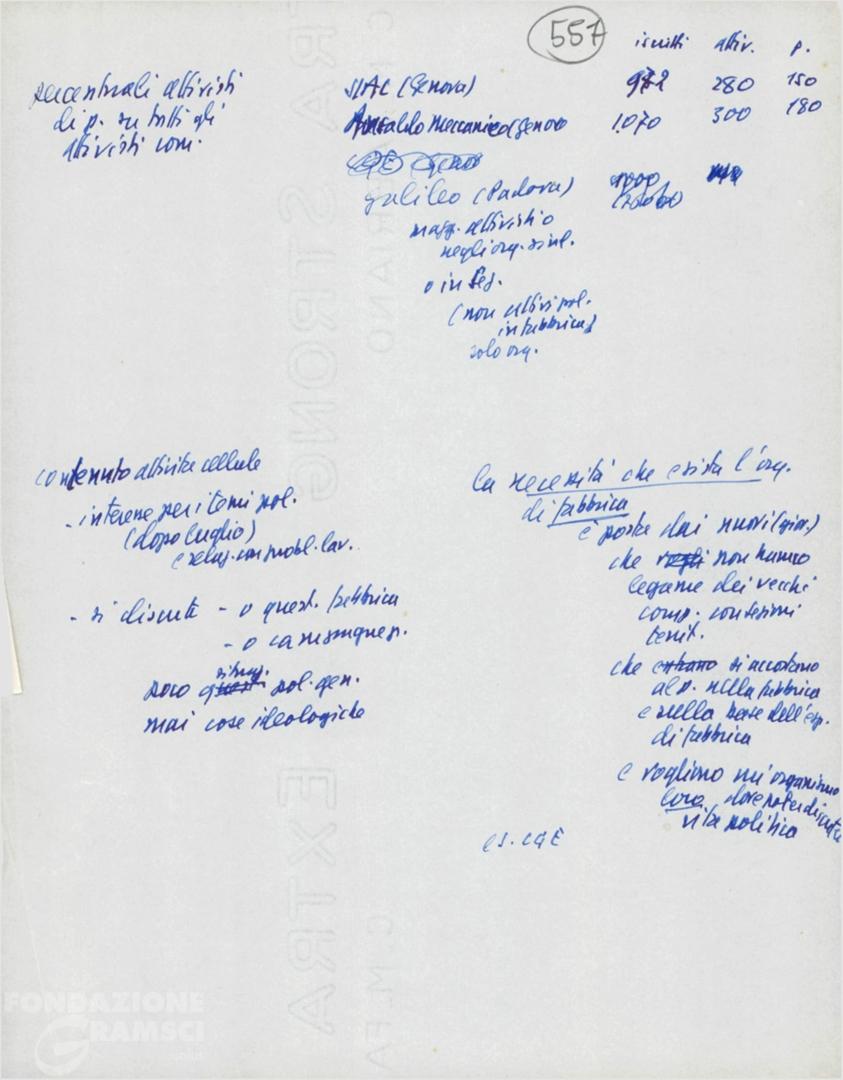 557
iscritti attiv. p.
percentuali attivisti
di p. su tutti gli
attivisti com.
SIAC (Genova) 972 280 150
Ansaldo Meccanico (Genova 1.070 300 180
Galileo (Padova)
magg. attivisti o
negli org. sind.
o in sez.
(non attivi pol.
in fabbrica)
solo org.
contenuto attività cellule
- interesse per i temi pol.
(dopo luglio)
e relaz. con probl. lav.
- si discute - o quest. fabbrica
- o campagne p.
situaz.
poco quest. pol. gen.
mai cose ideologiche
la necessità che esista l'org.
di fabbrica
è posta dai nuovi (giov.)
che vogli non hanno
legame dei vecchi
comp. con sezioni
territ.
che entrano si accostano
al p. nella fabbrica
e sulla base dell'esp.
di fabbrica
e vogliono un'organismo
loro dove poter discutere
vita politica
es. CGE
EXTRA STRONG
C.M.F.A.
FABRIANO
FONDAZIONE
GRAMSCI